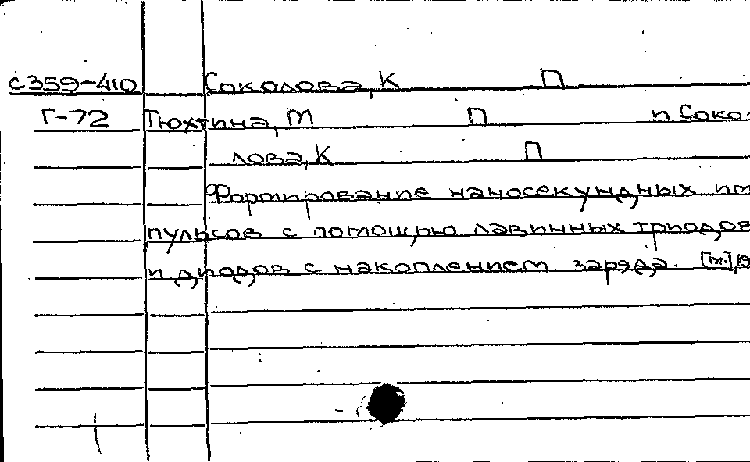 с359-410 Соколова, К П
Г-72 Тюхтина, М П и Соко-
лова, К П
Формирование наносекундных им
пульсов с помощью лавинных триодов
и диодов с накоплением заряда. [М.], 19